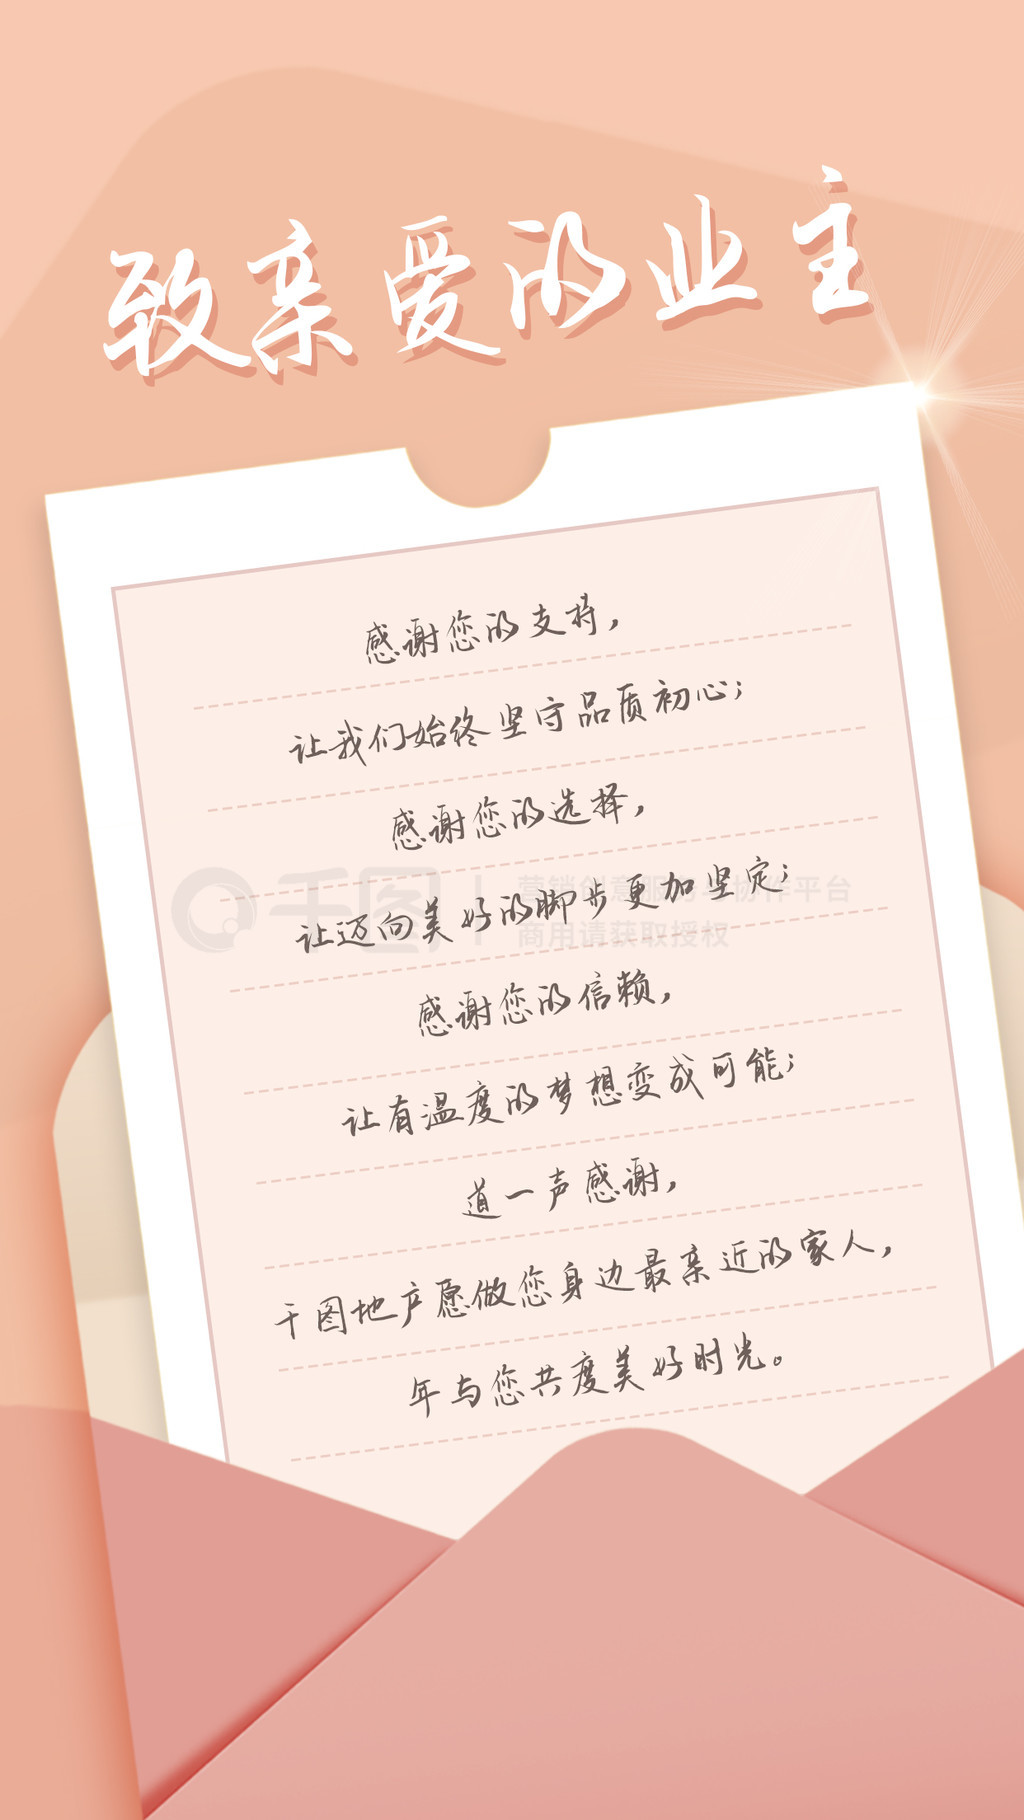 致亲爱的业主
感谢您的支持，
让我们始终坚守品质初心；
感谢您的选择，
让迈向美好的脚步更加坚定；
千图 | 营销创意服务与协作平台
商用请获取授权
感谢您的信赖，
让有温度的梦想变成可能；
道一声感谢，
千图地产愿做您身边最亲近的家人，
年与您共度美好时光。